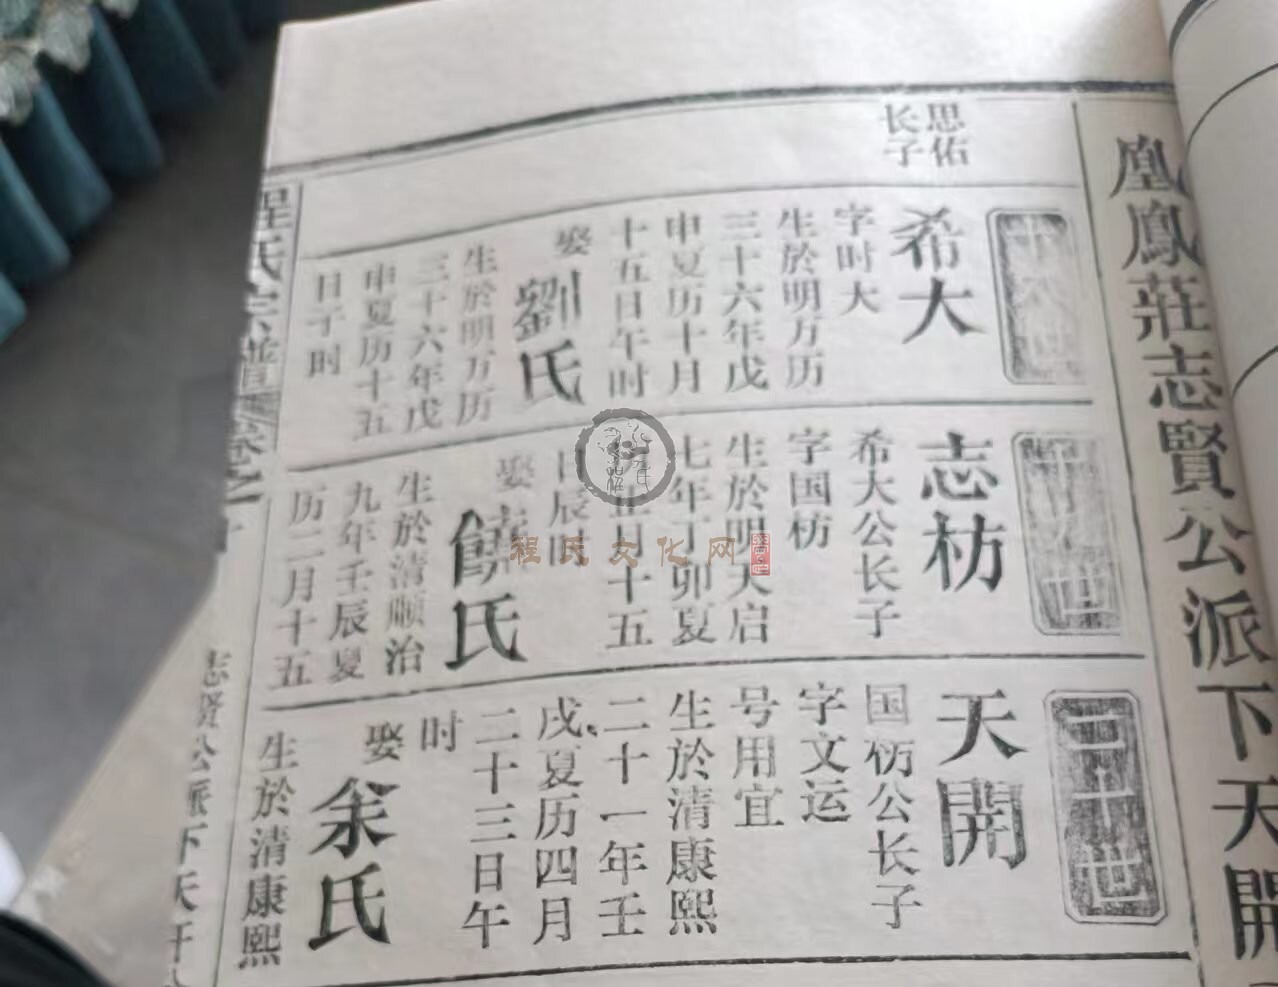 凰鳳莊志賢公派下天開
思佑
长子
十八世
希大
字时大
生於明万历
三十六年戊
申夏历十月
十五日午时
娶
劉氏
生於明万历
三十六年戊
申夏历十五
日子时
十九世
志枋
希大公长子
字国枋
生於明天启
七年丁卯夏
正月十五
日辰时
娶
氏
生於清顺治
九年壬辰夏
历二月十五
二十世
天開
国枋公长子
字文运
号用宜
生於清康熙
二十一年壬
戌夏历四月
二十三日午
时
娶
余氏
生於清康熙
程氏宗谱
卷之
志賢公派下天开
程氏文化网